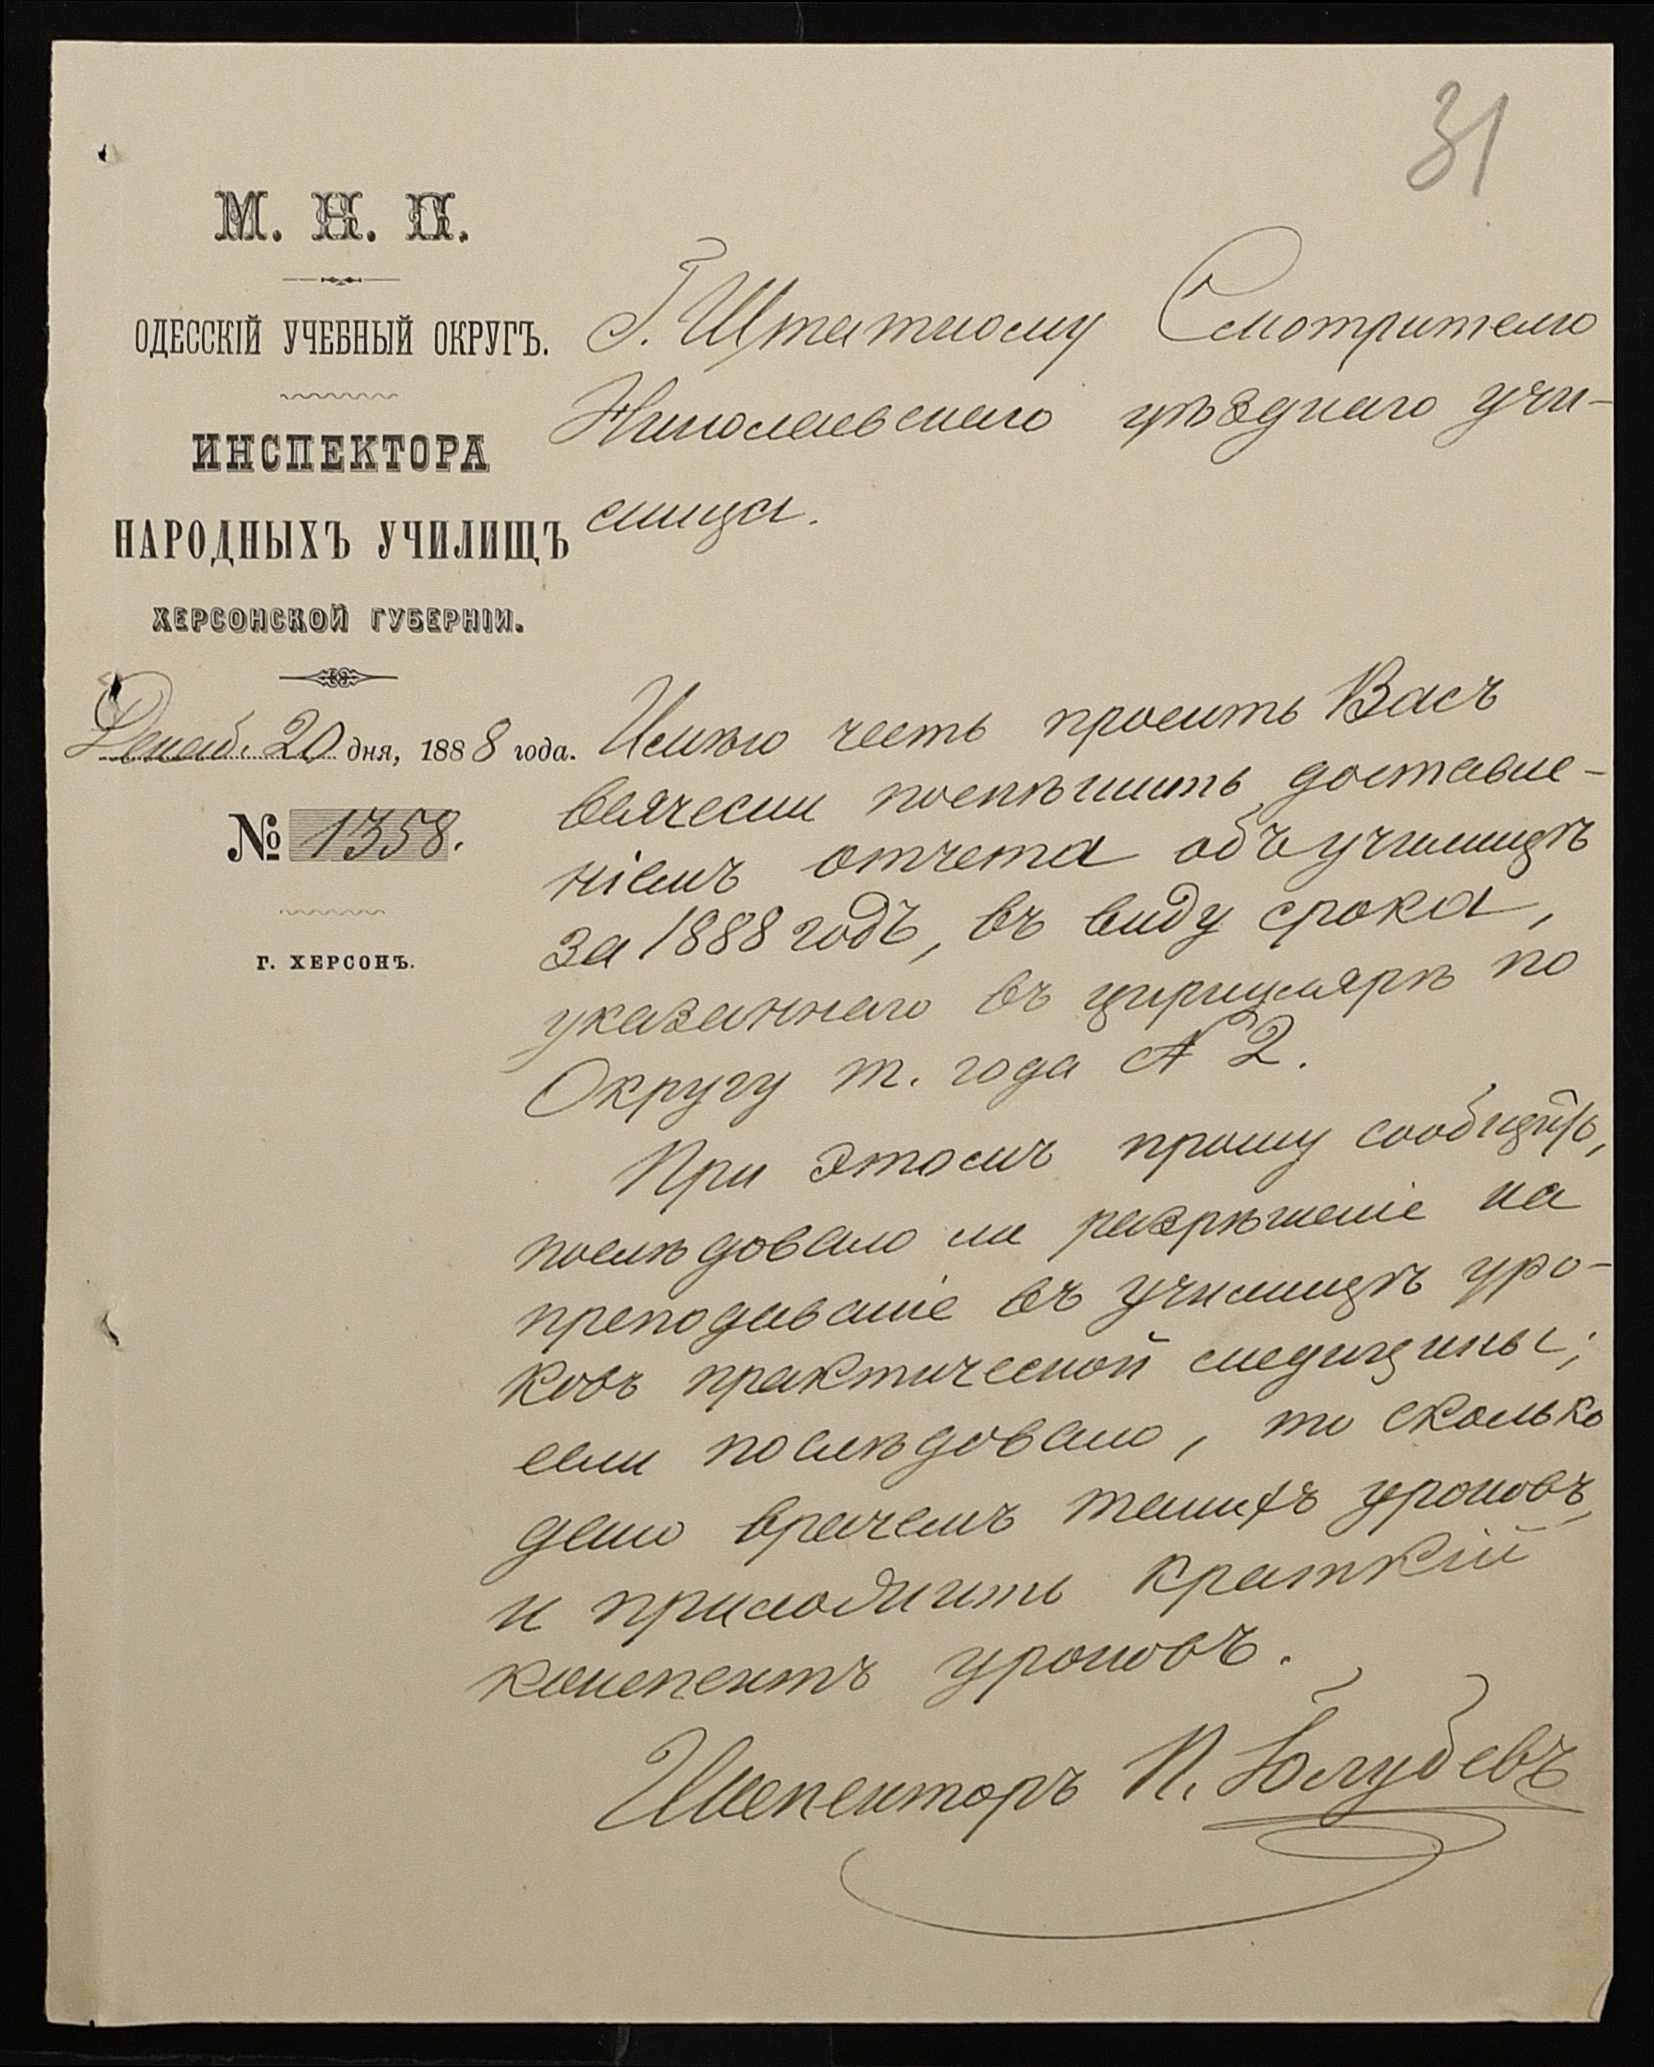 31
М. Н. П.
ОДЕССКІЙ УЧЕБНЫЙ ОКРУГЪ.
ИНСПЕКТОРА
НАРОДНЫХЪ УЧИЛИЩЪ
ХЕРСОНСКОЙ ГУБЕРНІИ.
Декаб. 20 дня, 1888 года.
№ 1358.
Г. ХЕРСОНЪ.
Г. Штатному Смотрителю
Николаевскаго уѣзднаго учи-
лища.
Имѣю честь просить Васъ
всячески поспѣшить доставле-
ніемъ отчета объ училищѣ
за 1888 годъ, въ виду срока,
указаннаго въ циркулярѣ по
Округу т. года № 2.
При этомъ прошу сообщить,
послѣдовало ли разрѣшеніе на
преподаваніе въ училищѣ уро-
ковъ практической медицины;
если послѣдовало, то сколько
дано врачемъ такихъ уроковъ,
и приложить краткій
конспектъ уроковъ.
Инспекторъ П. Голубевъ